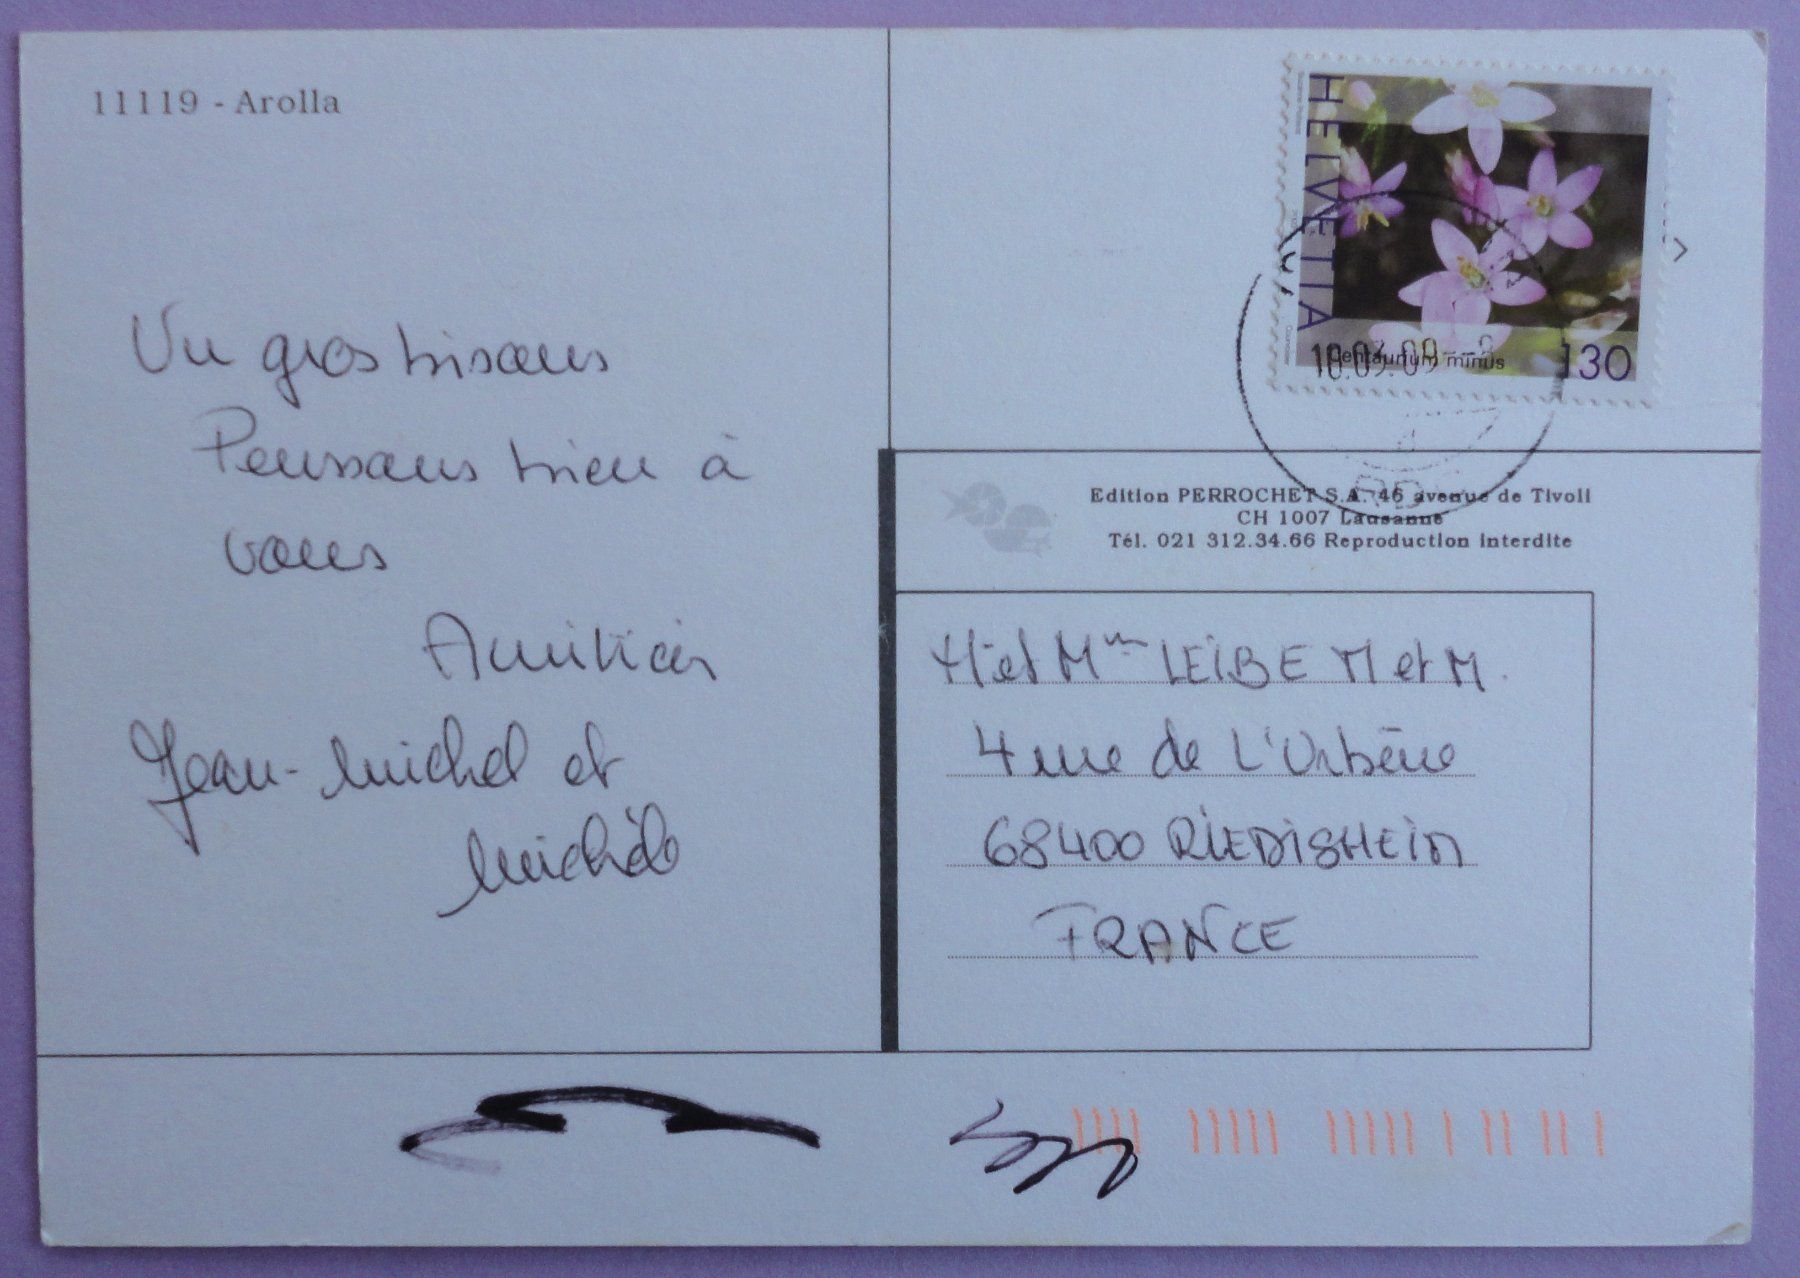 11119 - Arolla
Un gros bisous
Pensons bien à
vous
Amitiés
Jean-Michel et
Michèle
HELVETIA
Centaurium minus
130
10.03.09
Edition PERROCHET S.A. 46 avenue de Tivoli
CH 1007 Lausanne
Tél. 021 312.34.66 Reproduction interdite
M et Mme LEIBE M et M.
4 rue de L'Urbène
68400 RIEDISHEIM
FRANCE